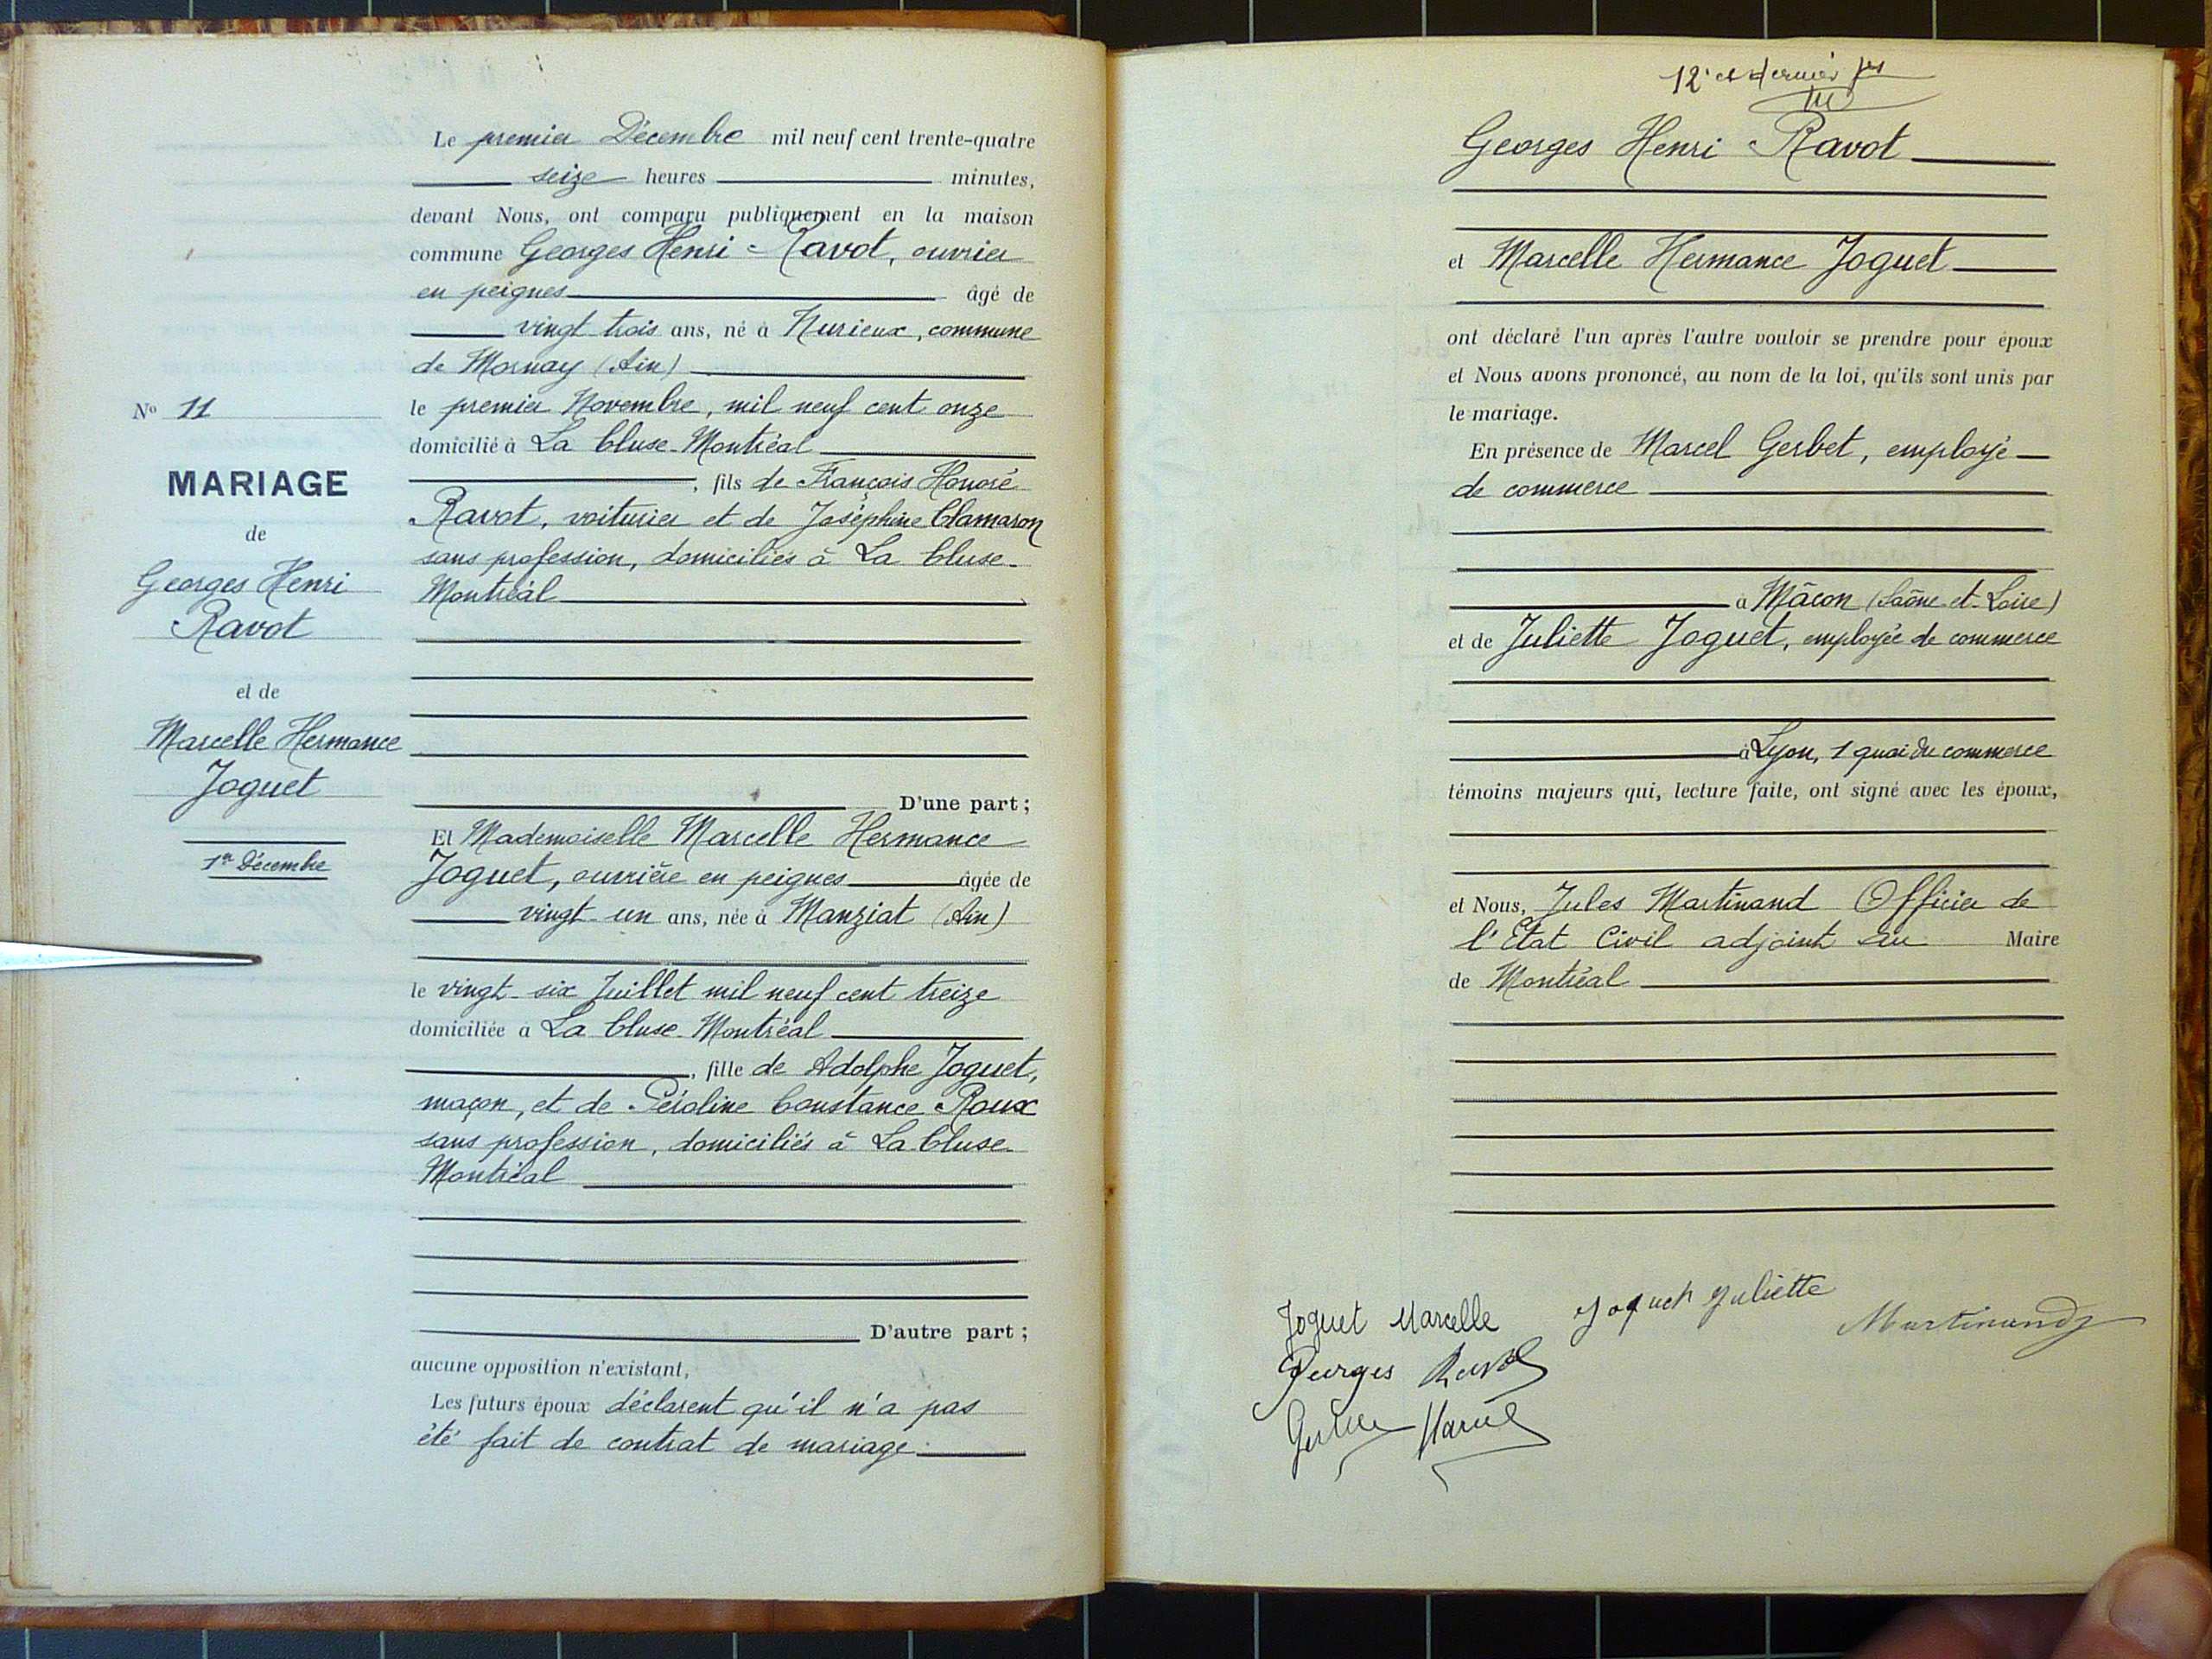 Le premier Décembre mil neuf cent trente-quatre
seize heures minutes,
devant Nous, ont comparu publiquement en la maison
commune Georges Henri Ravot, ouvrier
en peignes âgé de
vingt trois ans, né à Nurieux, commune
de Mornay (Ain)
le premier Novembre, mil neuf cent onze
domicilié à La Cluse-Montréal
, fils de François Honoré
Ravot, voiturier et de Joséphine Clamaron
sans profession, domiciliés à La Cluse-
Montréal
D'une part ;
Et Mademoiselle Marcelle Hermance
Joguet, ouvrière en peignes âgée de
vingt-un ans, née à Manziat (Ain)
le vingt-six Juillet mil neuf cent treize
domiciliée à La Cluse-Montréal
, fille de Adolphe Joguet,
maçon, et de Péroline Constance Roux
sans profession, domiciliés à La Cluse-
Montréal
D'autre part ;
aucune opposition n'existant,
Les futurs époux déclarent qu'il n'a pas
été fait de contrat de mariage.
No 11
MARIAGE
de
Georges Henri
Ravot
et de
Marcelle Hermance
Joguet
1er Décembre
12e et dernier
Georges Henri Ravot
et Marcelle Hermance Joguet
ont déclaré l'un après l'autre vouloir se prendre pour époux
et Nous avons prononcé, au nom de la loi, qu'ils sont unis par
le mariage.
En présence de Marcel Gerbet, employé
de commerce
à Mâcon (Saône-et-Loire)
et de Juliette Joguet, employée de commerce
à Lyon, 1 quai du commerce
témoins majeurs qui, lecture faite, ont signé avec les époux,
et Nous, Jules Martinand Officier de
l'Etat Civil adjoint au Maire
de Montréal
Joguet Marcelle
Joguet Juliette
Martinand
Georges Ravot
Gerbet Marcel